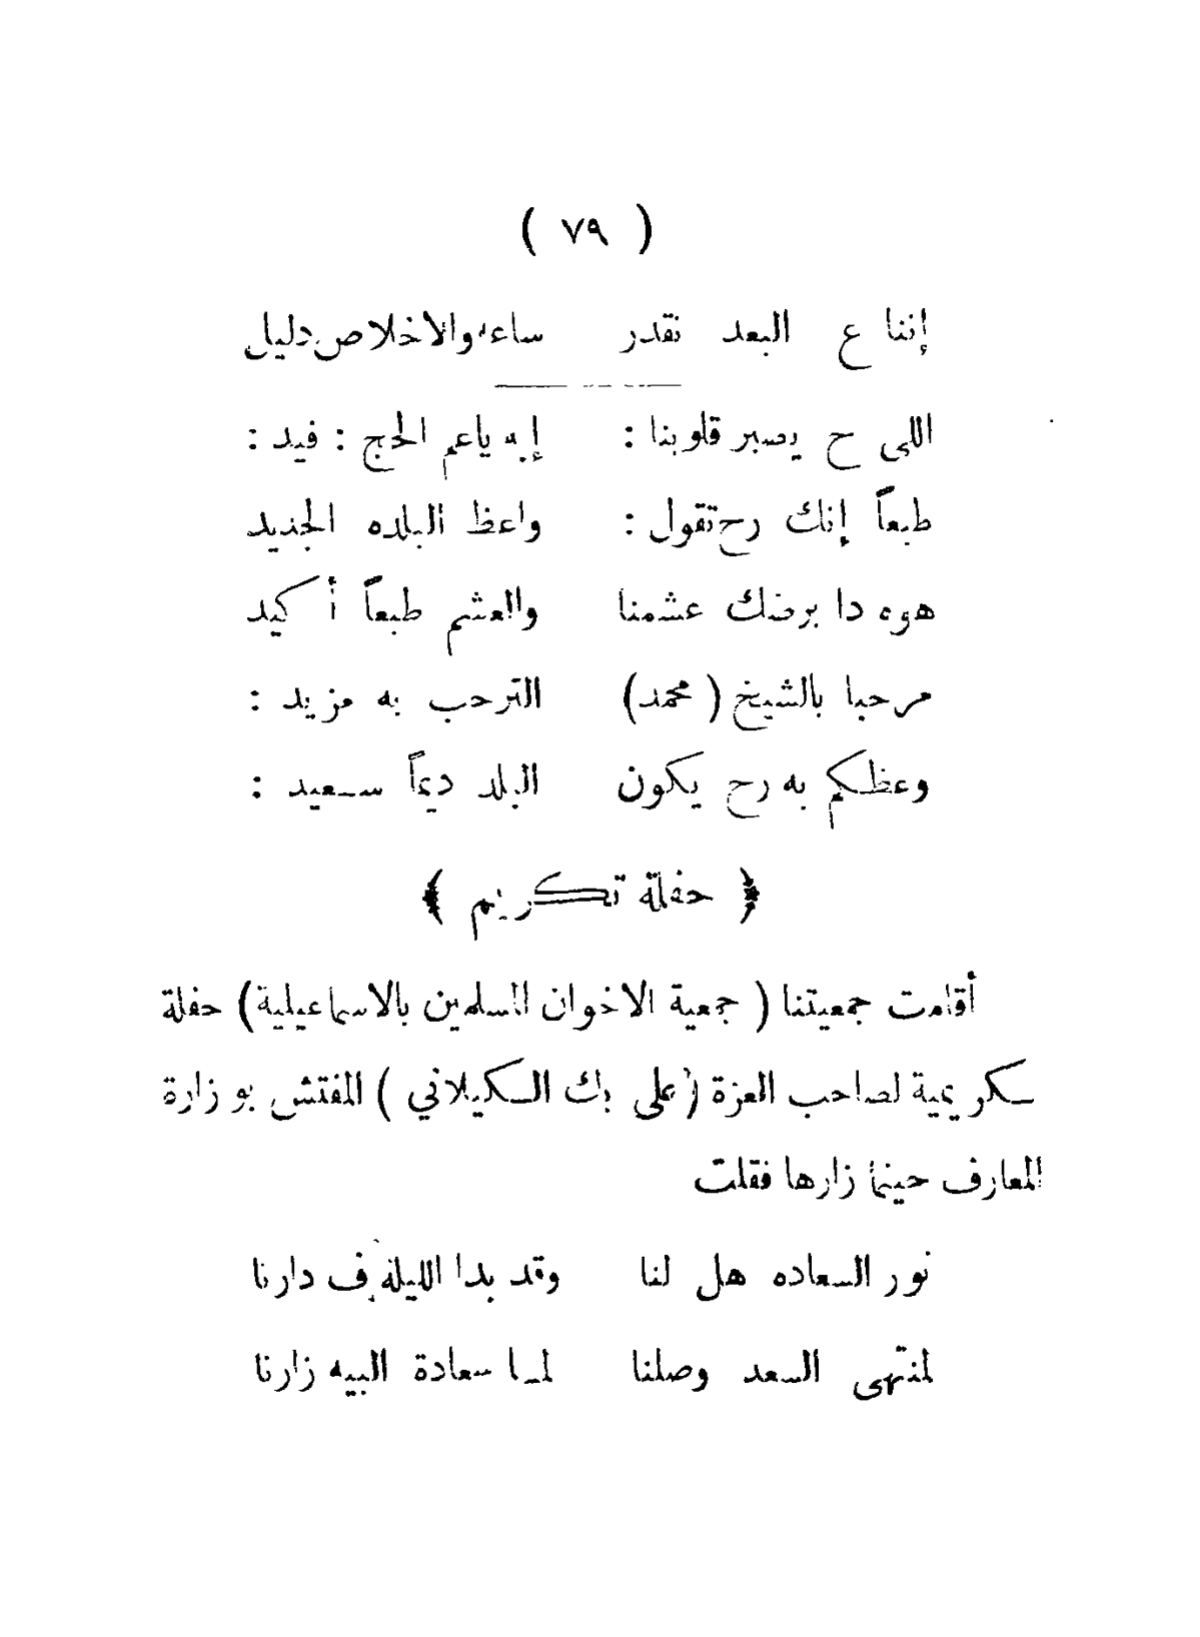 ( ٧٩ )
إننا ع البعد نقدر ساعه والاخلاص دليل
اللى ح يصبر قلوبنا : إيه ياعم الحج : فيد :
طبعاً إنك رح تقول : واعظ البلده الجديد
هوه دا برضك عشمنا والعشم طبعاً أكيد
مرحبا بالشيخ ( محمد) الترحب به مزيد :
وعظكم به رح يكون البلد ديماً سعيد :
﴿ حفلة تكريم ﴾
أقامت جمعيتنا ( جمعية الاخوان المسلمين بالاسماعيلية) حفلة
تكريمية لصاحب العزة ( على بك الكيلاني ) المفتش بوزارة
المعارف حينما زارها فقلت
نور السعاده هل لنا وقد بدا الليلة ف دارنا
لمنتهى السعد وصلنا لما سعادة البيه زارنا